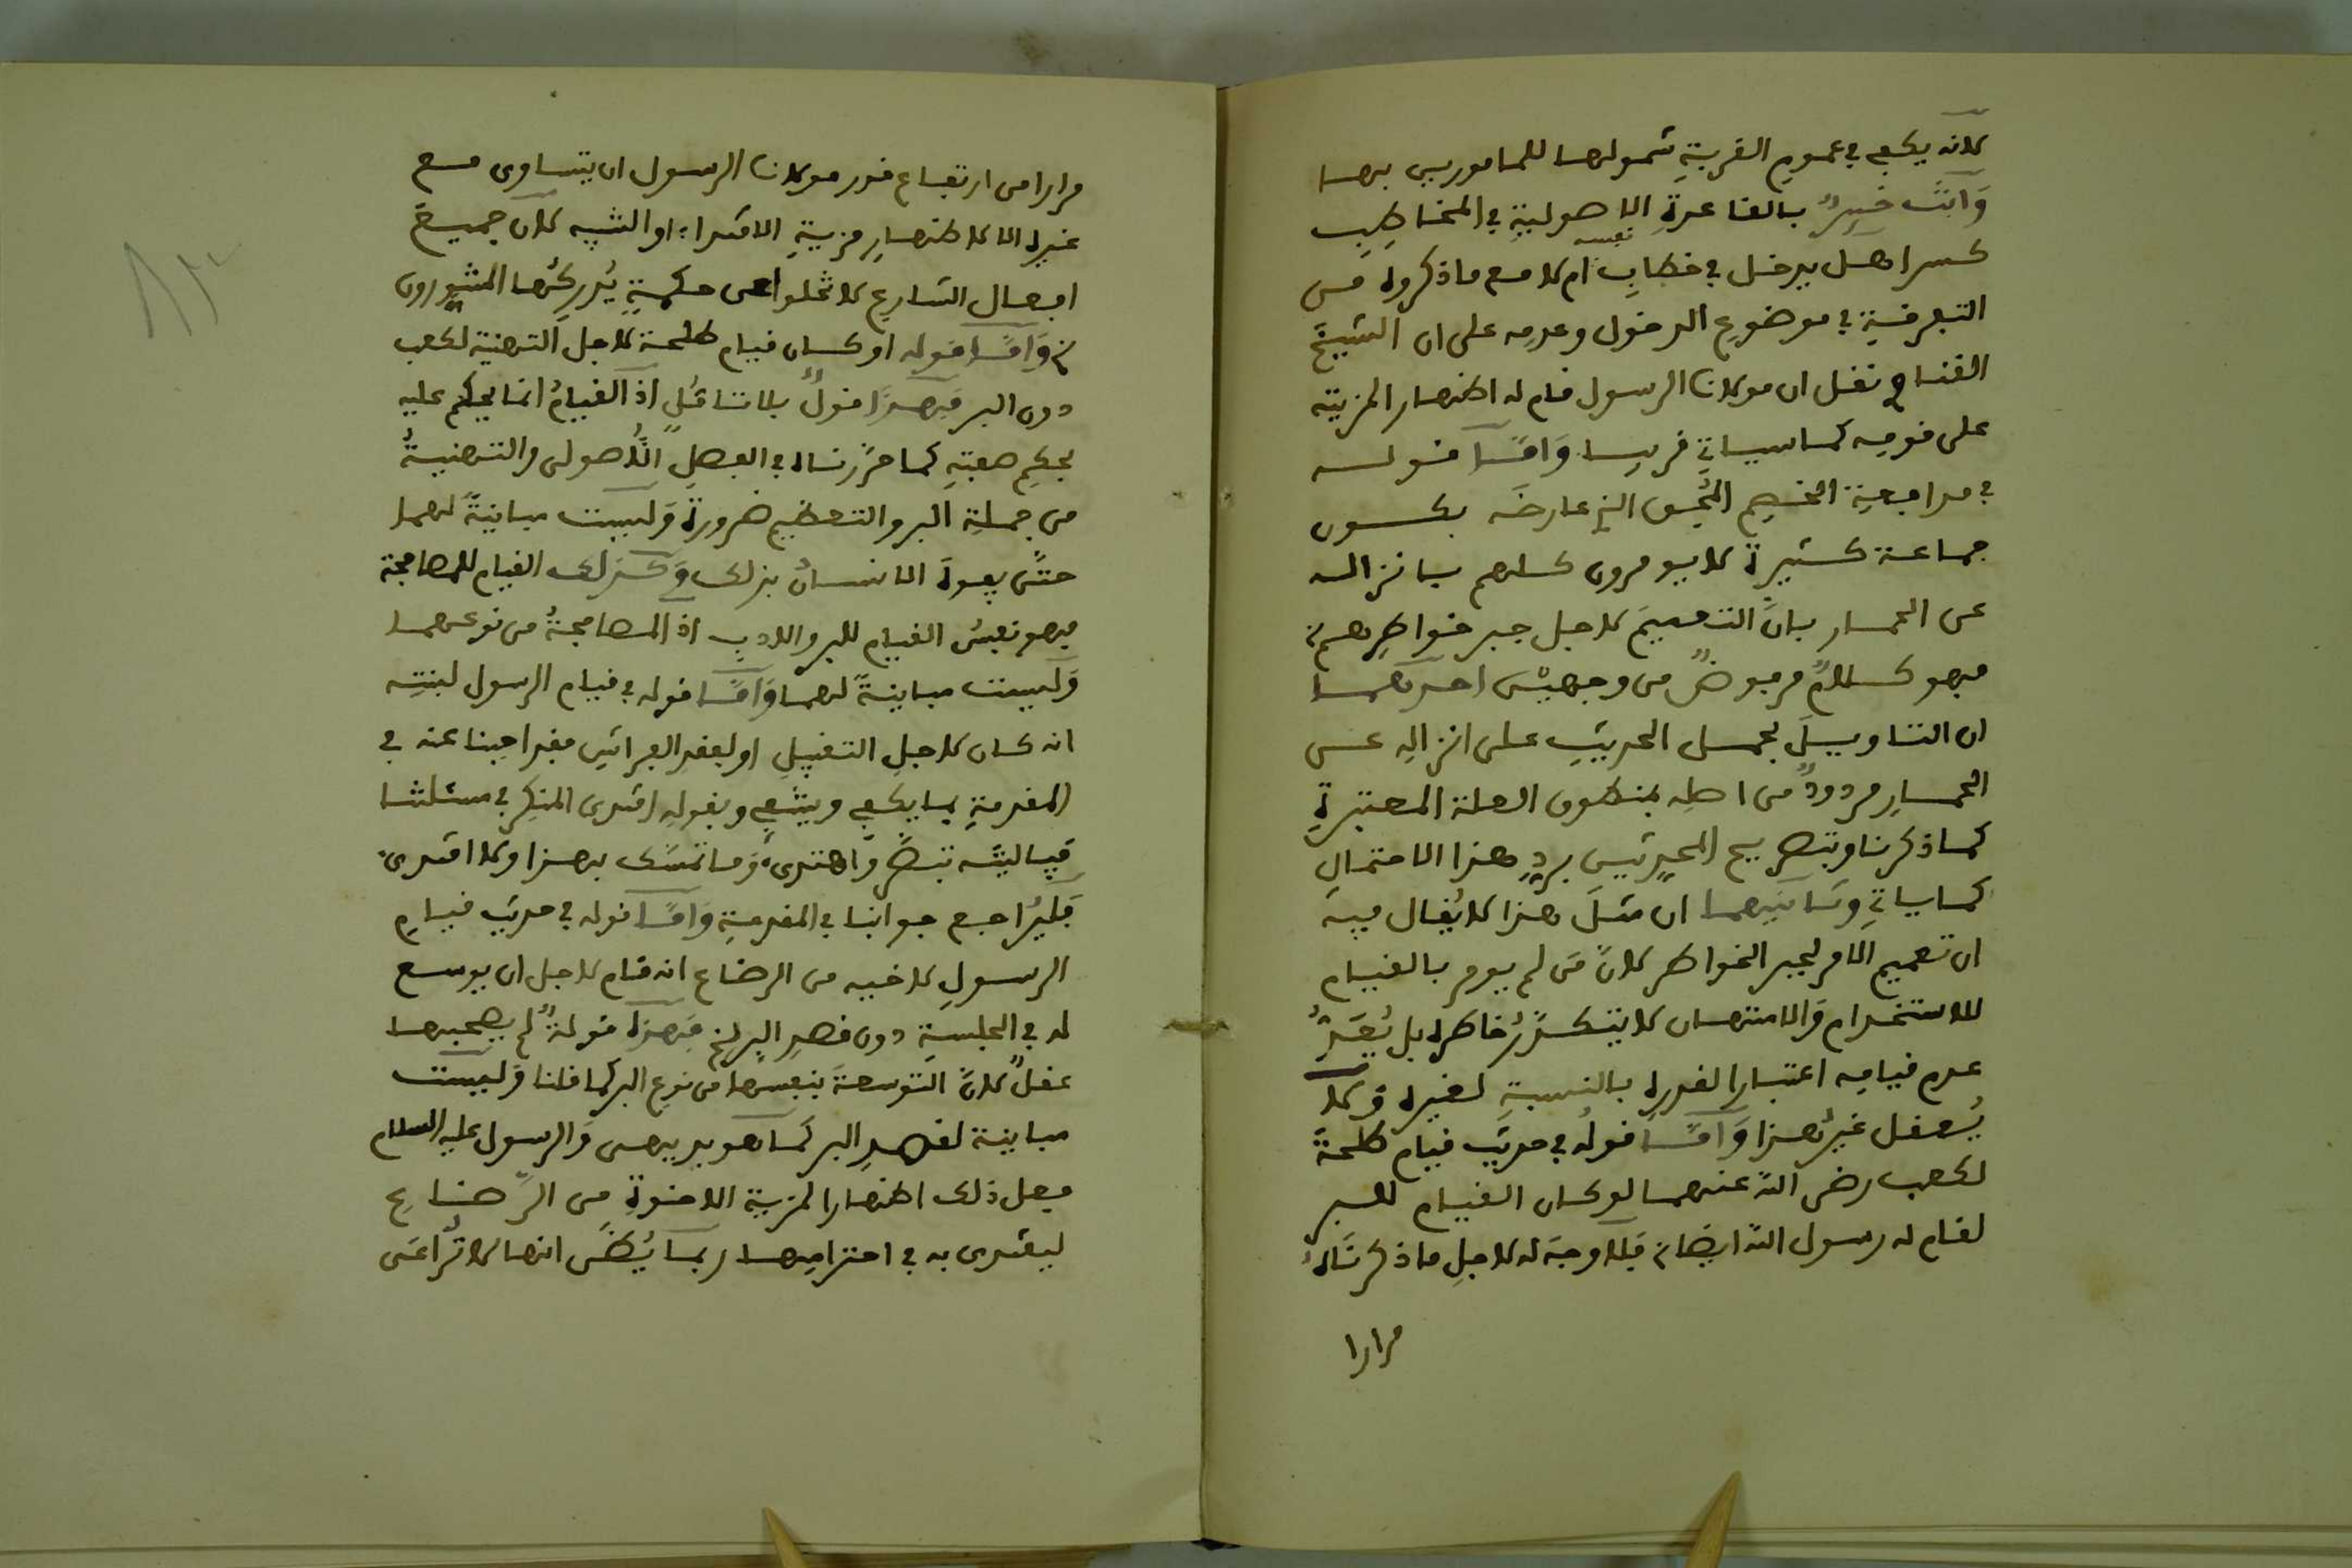 لانه يكفي في عموم القرية شمولها للمامورين بها
وَانتَ خبيرٌ بالقاعدةِ الاصوليةِ في المخاطِبِ
كسرا هل يدخل في خطابِ نفسه ام لا مع ما ذكروه من
التفرقةِ في موضوعِ الدخول وعدمِه على ان الشيخَ
القناع نقل ان مولانا الرسول قام له اظهار المزيته
على قومِه كما سياتِي قريبا وَامَّا قوله
في مدافعةِ الخصم الذي عارضَه بكون
جماعة كثيرة لا يومرون كلهم بانزاله
عن الحمار بانَّ التعميمَ لاجل جبر خواطِرهم
فهو كلامٌ مرفوضٌ من وجهيْن احدهما
ان التاويلَ بحمل الحديثِ على انزالِه عن
الحمارِ مردودٌ من اصلِه بمنطوق العلة المعتبرةِ
كما ذكرنا وبتصريح المحدثين بردِ هذا الاحتمالِ
كما ياتِي وَثانيهما ان مثلَ هذا لا يُقال فيه
ان تعميم الامر لجبر الخواطر لانَّ مَن لم يومر بالقيام
للاستخدام وَالامتهان لا يتكدَّرُ خاطره بل يُعَدُّ
عدم قيامِه اعتبارا لقدرهِ بالنسبةِ لغيره وَلا
يُعقل غيرُ هذا وَامَّا قولُه في حديث قيام طلحةَ
لكعب رضى اللهُ عنهما لو كان القيام للبر
لقام له رسول اللهِ ايضا فلا وجهَ له لاجلِ ما ذكرنَاهُ
مرارا
مرارا من ارتفاع قدر مولانا الرسول ان يتساوى مع
غيره الا لاظهارِ مزيةِ الاقتداء او التنبيه لان جميعَ
افعال الشارع لا تخلوا عن حكمةٍ يُدركُها المتنورون
وَامَّا قوله او كان قيام طلحة لاجل التهنية لكعب
دون البر فهذا قولٌ بلا تاملٍ اذ القيامُ انما يُحكم عليه
بحكِم صفتِه كما حرَّرناه في الفصلِ الاُصولى والتهنيةُ
من جملةِ البر والتعظيم ضرورة وَليست مباينةً لهما
حتَّى يفوهَ الانسانُ بذلك وَكذلك القيام للمصافحة
فهو نفسُ القيام للبر والادبِ اذ المصافحةُ من نوعهما
وَليست مباينةً لهما وَامَّا قوله في قيام الرسول لبنتِه
انه كان لاجلِ التقبيلِ او لفقدِ الفراشِ فقد اجبنا عنه في
المقدمةِ بما يكفي ويشفي وبقولِه اقتدى المنكِر في مسئلتنا
فياليته تبصَّر وَاهتدى وَما تمسَّك بهذا ولا اقتدى
فليُراجع جوابنا في المقدمةِ وَامَّا قوله في حديث قيامِ
الرسولِ لاخيه من الرضاع انه قام لاجل ان يوسع
له في الجلسةِ دون قصدِ البر فهذه قولةٌ لم يصحبها
عقلٌ لانَّ التوسعةَ بنفسها من نوعِ البر كما قلنا وَليست
مباينة لقصدِ البر كما هو بديهى وَالرسول عليه السلام
فعل ذلك اظهارا لمزية الاخوةِ من الرَّضاعِ
ليقتدى به في احترامِها ربما يُظن انها لا تُراعَى